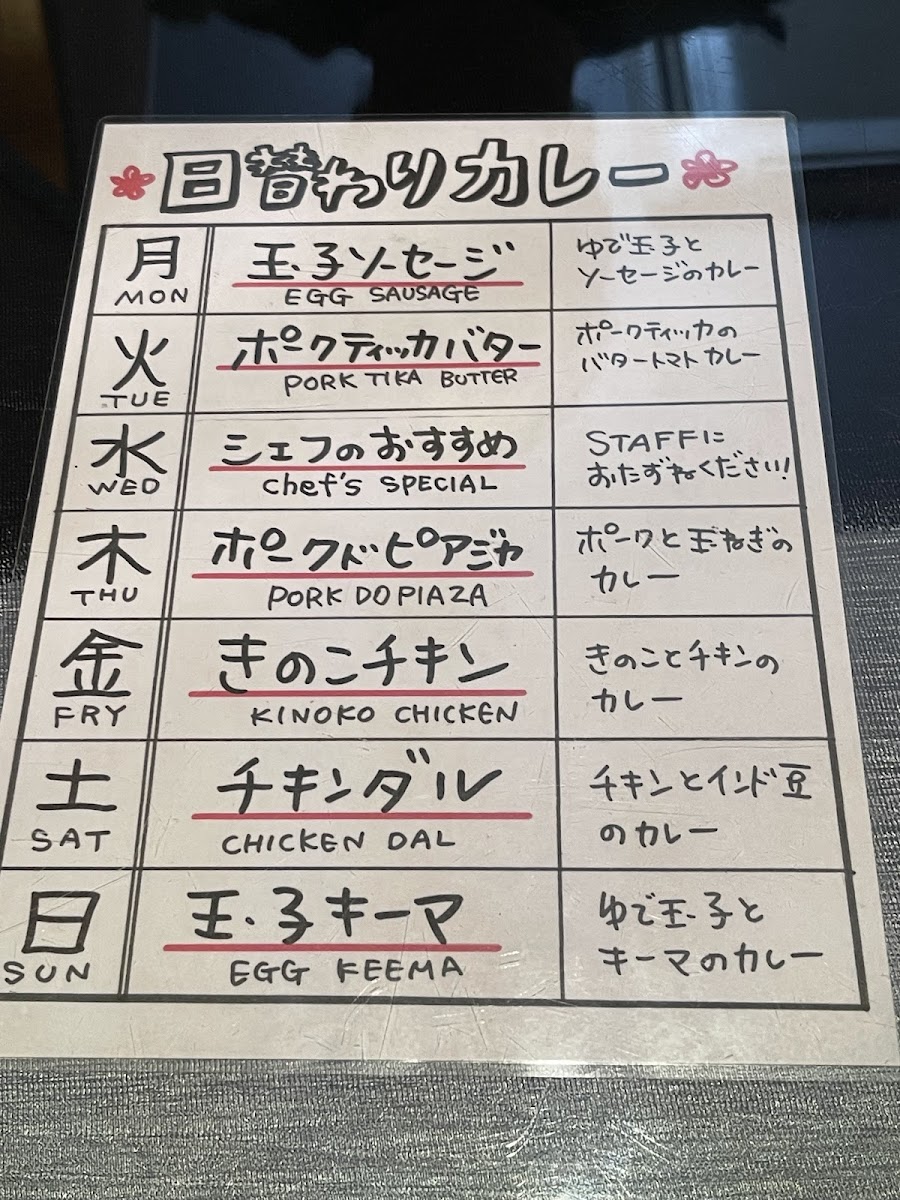 日替わりカレー
月
MON
玉子ソーセージ
EGG SAUSAGE
ゆで玉子と
ソーセージのカレー
火
TUE
ポークティッカバター
PORK TIKA BUTTER
ポークティッカの
バタートマトカレー
水
WED
シェフのおすすめ
chef's SPECIAL
STAFFに
おたずねください!
木
THU
ポークドピアジャ
PORK DO PIAZA
ポークと玉ねぎの
カレー
金
FRY
きのこチキン
KINOKO CHICKEN
きのことチキンの
カレー
土
SAT
チキンダル
CHICKEN DAL
チキンとインド豆
のカレー
日
SUN
玉子キーマ
EGG KEEMA
ゆで玉子と
キーマのカレー